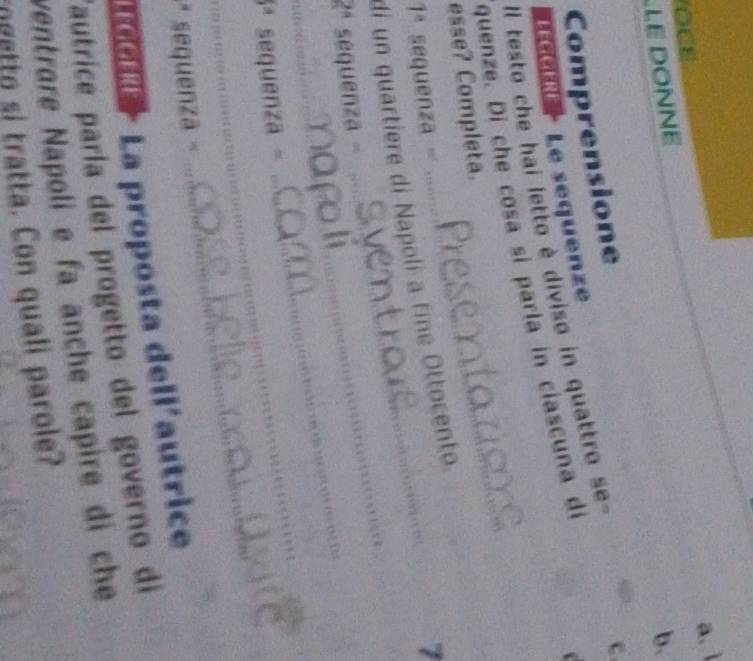 VOCE
LLE DONNE
a.
b.
c.
Comprensione
LEGGERE Le sequenze
Il testo che hai letto è diviso in quattro se-
quenze. Di che cosa si parla in ciascuna di
esse? Completa.
1ª sequenza = Presentazione
di un quartiere di Napoli a fine Ottocento.
2ª sequenza = sventrare
napoli
3ª sequenza = cam
ª sequenza = cose belle mai
LEGGERE La proposta dell'autrice
'autrice parla del progetto del governo di
ventrare Napoli e fa anche capire di che
ogetto si tratta. Con quali parole?
7